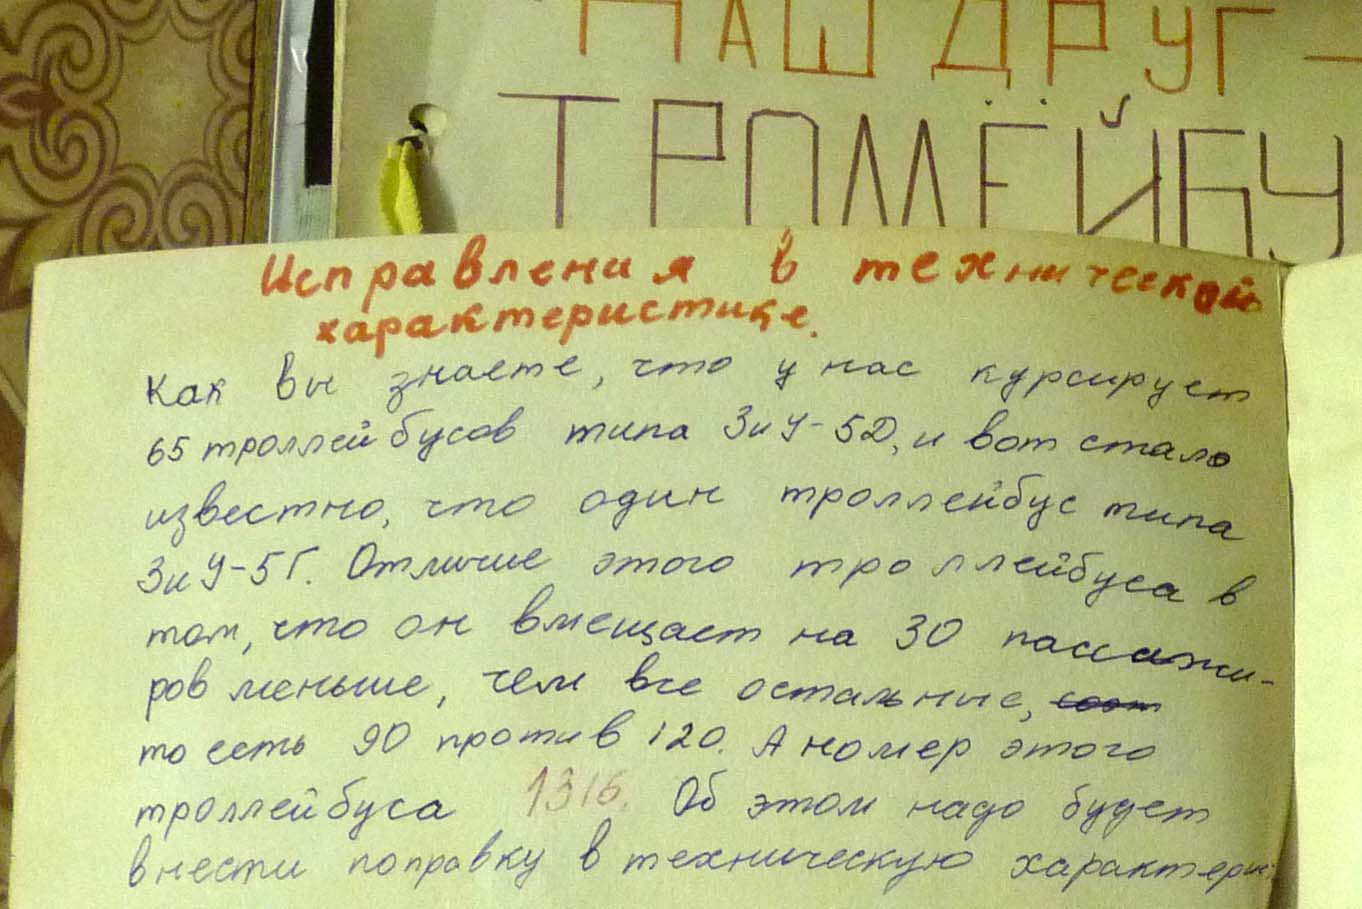 НАШ ДРУГ –
ТРОЛЛЕЙБУ
Исправления в технической
характеристике.
Как вы знаете, что у нас курсирует
65 троллейбусов типа ЗиУ-5Д, и вот стало
известно, что один троллейбус типа
ЗиУ-5Г. Отличие этого троллейбуса в
том, что он вмещает на 30 пассажи-
ров меньше, чем все остальные,
то есть 90 против 120. А номер этого
троллейбуса 1316. Об этом надо будет
внести поправку в техническую характери-